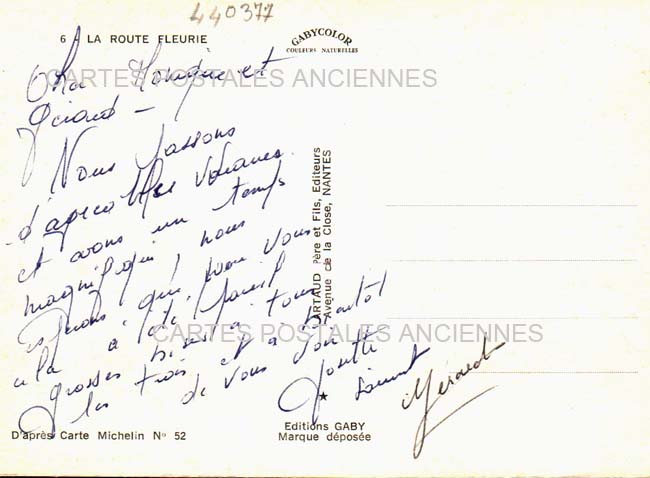 440377
6 - LA ROUTE FLEURIE
GABYCOLOR
COULEURS NATURELLES
CARTES POSTALES ANCIENNES
Monique et
Gérard -
Nous passons
d'agréables vacances
et avons un temps
magnifique, nous
espérons que pour vous
cela a été pareil
grosses bises à tous
les trois et à bientôt
de vous voir
Josette
Laurent
Gérard
ARTAUD Père et Fils, Editeurs
Avenue de la Close, NANTES
CARTES POSTALES ANCIENNES
D'après Carte Michelin Nº 52
Editions GABY
Marque déposée